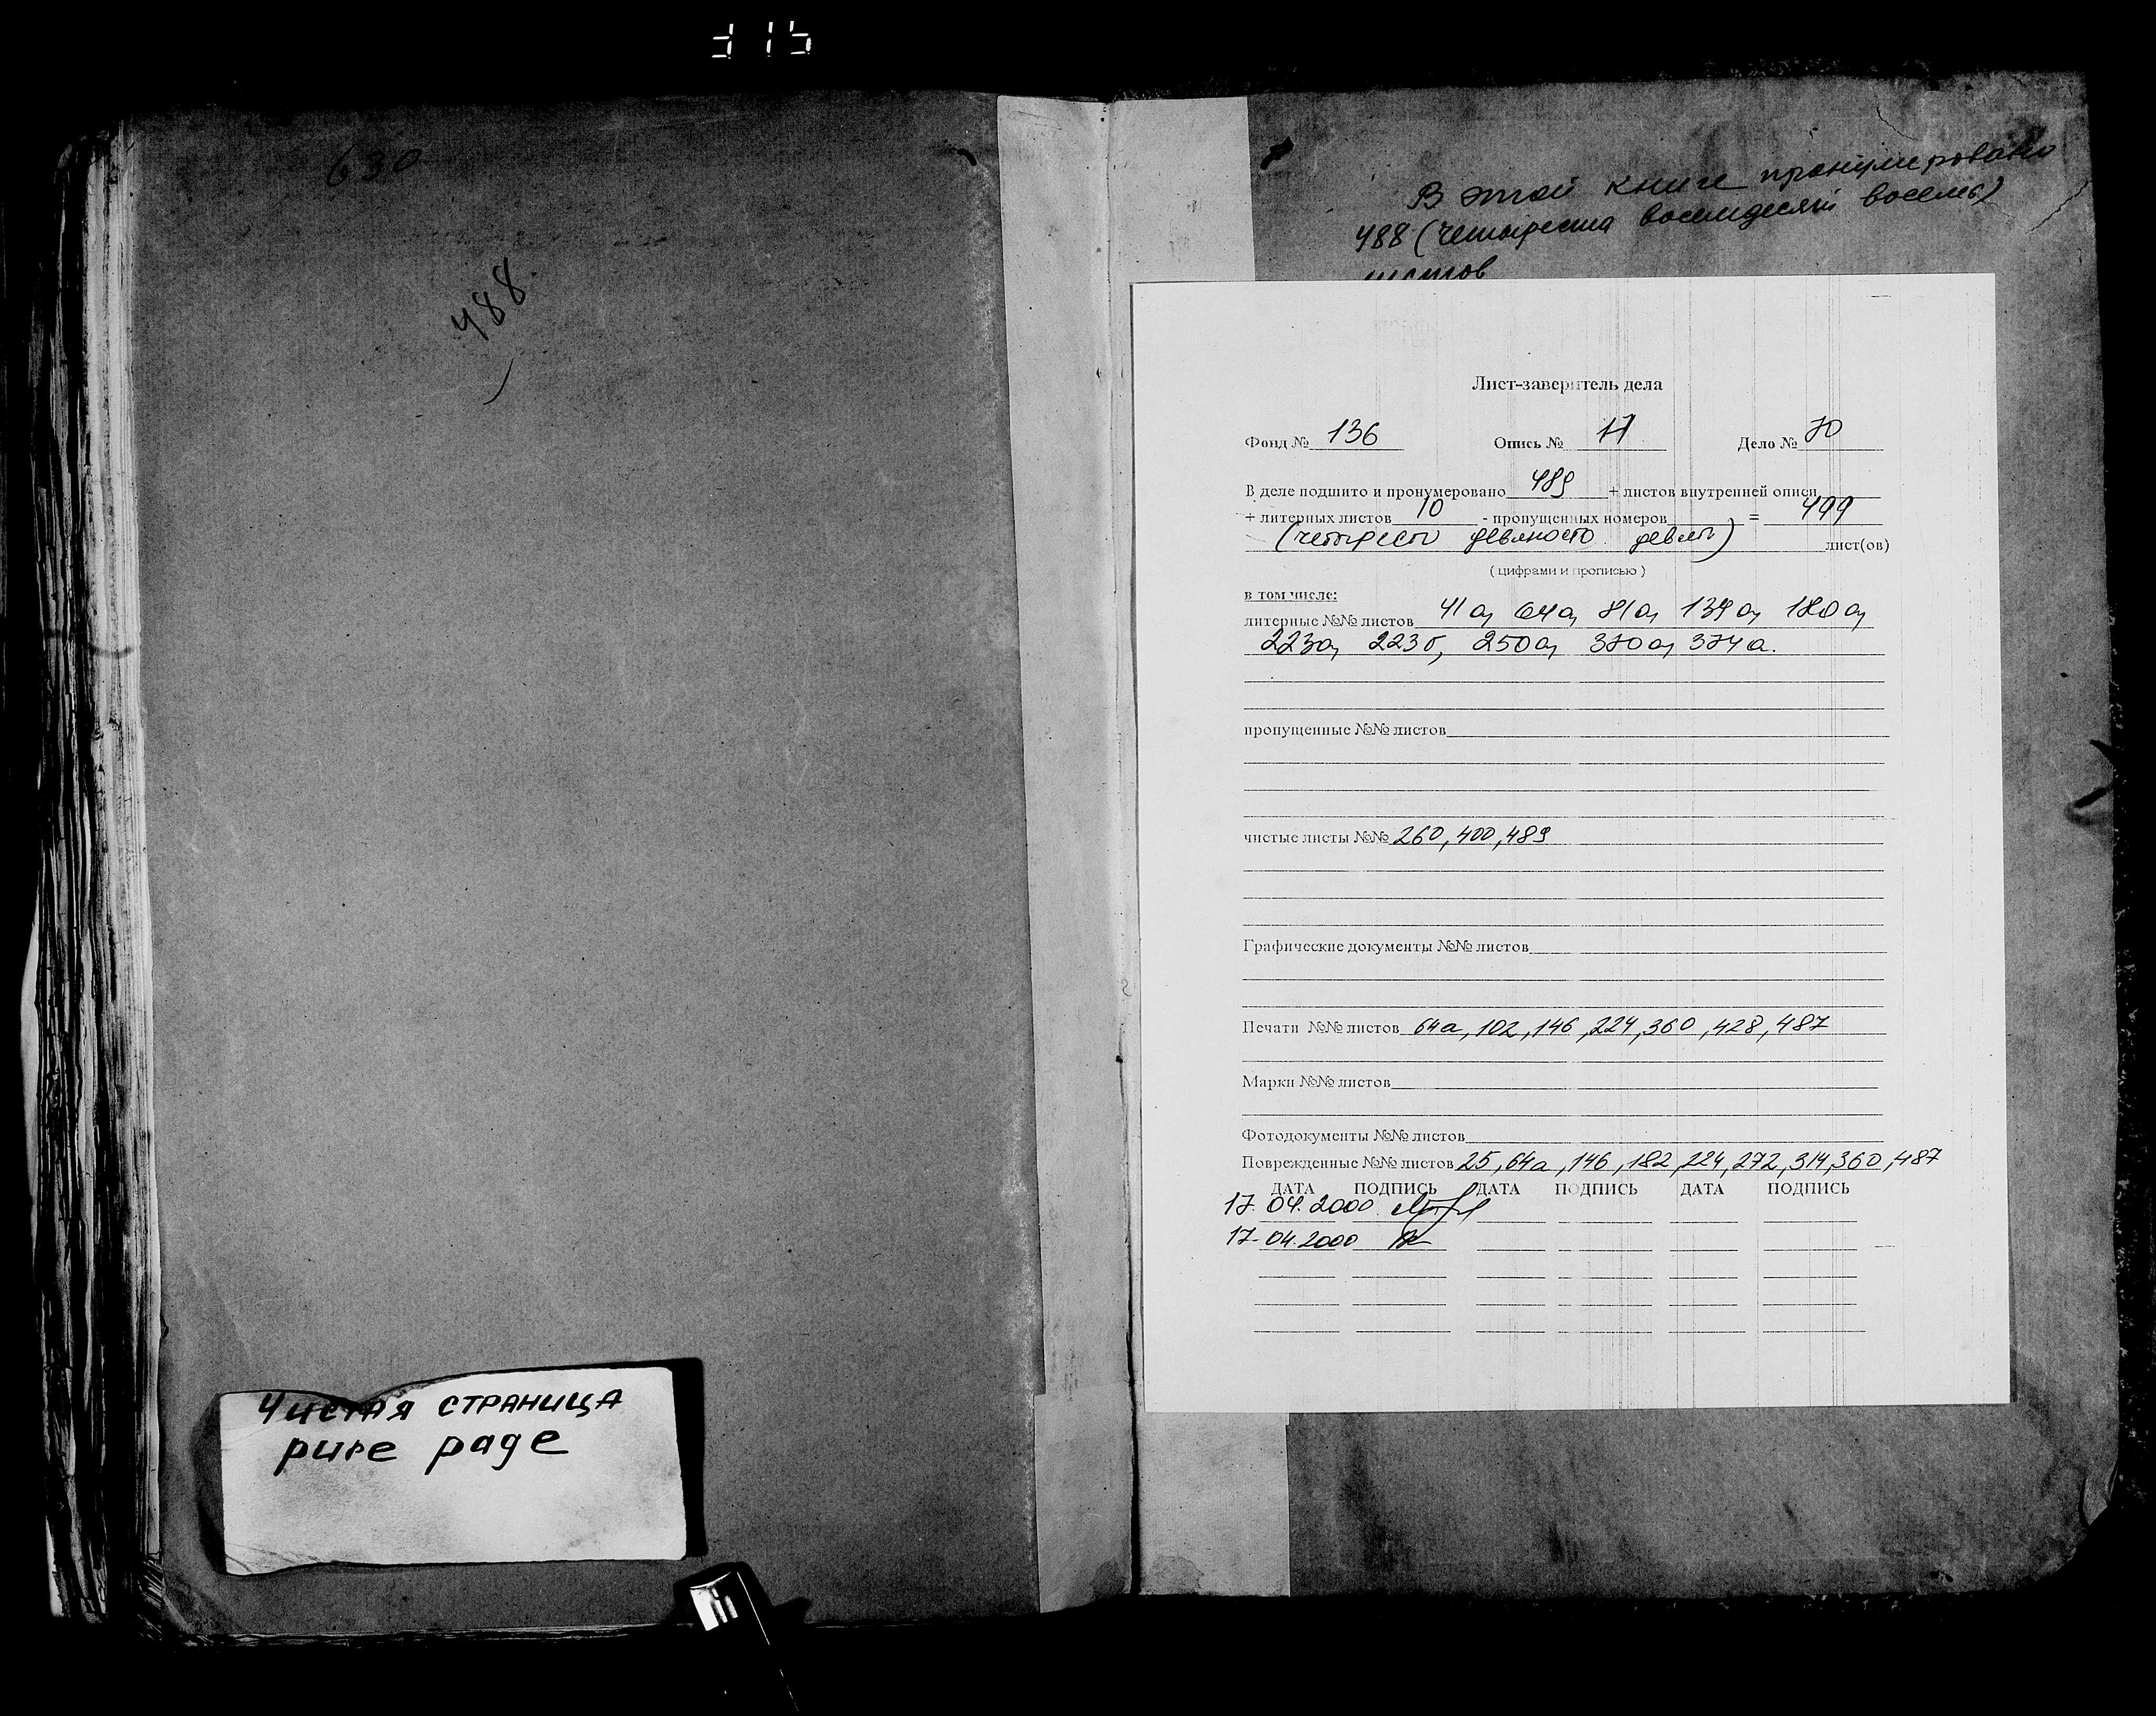 630
488
Чистая страница
pure page
В этой книге пронумеровано
488 (четыреста восемьдесят восемь)
листов
Лист-заверитель дела
Фонд № 136 Опись № Дело № 70
В деле подшито и пронумеровано 489 + листов внутренней описи
+ литерных листов 10 - пропущенных номеров = 499
(четырест девяносто девять) лист(ов)
( цифрами и прописью )
в том числе:
литерные №№ листов 41а, 64а, 81а, 139а, 180а,
223а, 223б, 250а, 370а, 374а.
пропущенные №№ листов
чистые листы №№ 260, 400, 489
Графические документы №№ листов
Печати №№ листов 64а, 102, 146, 224, 360, 428, 487
Марки №№ листов
Фотодокументы №№ листов
Поврежденные №№ листов 25, 64а, 146, 182, 224, 272, 314, 360, 487
ДАТА ПОДПИСЬ ДАТА ПОДПИСЬ ДАТА ПОДПИСЬ
17.04.2000
17.04.2000